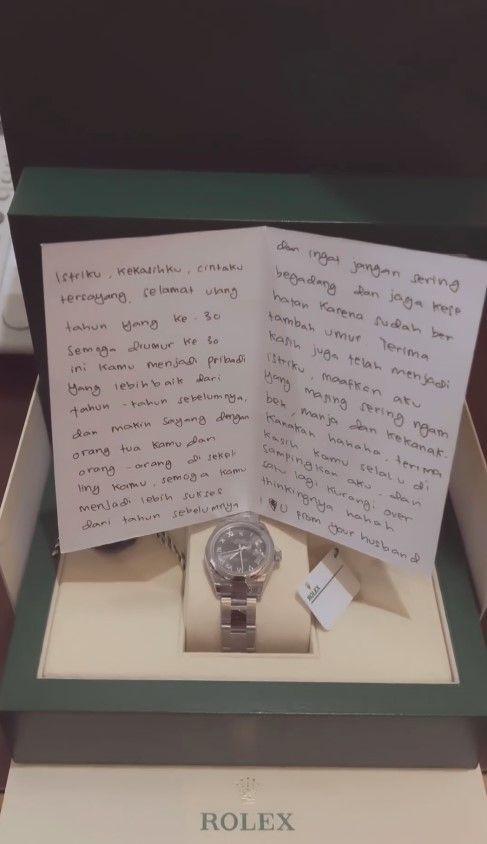 Istriku, kekasihku, cintaku
tersayang, selamat ulang
tahun yang ke-30
semoga diumur ke 30
ini kamu menjadi pribadi
yang lebih baik dari
tahun-tahun sebelumnya,
dan makin sayang dengan
orang tua kamu dan
orang-orang di sekeli
ling kamu, semoga kamu
menjadi lebih sukses
dari tahun sebelumnya
dan ingat jangan sering
begadang dan jaga kese
hatan karena sudah ber
tambah umur Terima
kasih juga telah menjadi
istriku, maafkan aku
yang masing sering ngam
bek, manja dan kekanak-
kanakan hahaha. terima
kasih kamu selalu di
sampingkan aku. dan
satu lagi kurangi over
thinkingnya hahah
I ♥ U From your husband
ROLEX
ROLEX